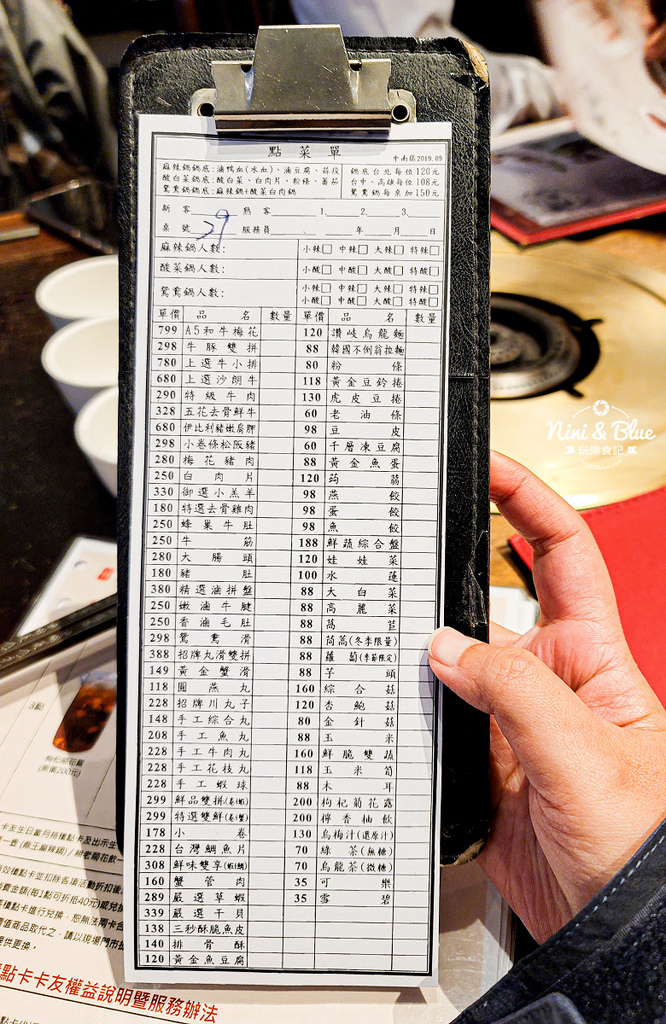 點菜單
中南區2019.09
麻辣鍋鍋底:滷鴨血(水血)、滷豆腐、蒜段
酸白菜鍋底:酸白菜、白肉片、粉條、蕃茄
鴛鴦鍋鍋底:麻辣鍋+酸菜白肉鍋
鍋底台北每位120元
台中、高雄每位108元
鴛鴦鍋每桌加150元
新客 熟客 1. 2. 3.
桌號 29 服務員 年 月 日
麻辣鍋人數: 小辣□ 中辣□ 大辣□ 特辣□
酸菜鍋人數: 小酸□ 中酸□ 大酸□ 特酸□
鴛鴦鍋人數: 小辣□ 中辣□ 大辣□ 特辣□
小酸□ 中酸□ 大酸□ 特酸□
單價 品名 數量 單價 品名 數量
799 A5和牛梅花 120 讚岐烏龍麵
298 牛豚雙拼 88 韓國不倒翁拉麵
780 上選牛小排 80 粉條
680 上選沙朗牛 118 黃金豆鈴捲
290 特級牛肉 130 虎皮豆捲
328 五花去骨鮮牛 60 老油條
680 伊比利豬嫩肩胛 98 豆皮
298 小卷條松阪豬 60 千層凍豆腐
280 梅花豬肉 88 黃金魚蛋
250 白肉片 120 蒟蒻
330 御選小羔羊 98 燕餃
180 特選去骨雞肉 98 蛋餃
250 蜂巢牛肚 98 魚餃
250 牛筋 188 鮮蔬綜合盤
280 大腸頭 120 娃娃菜
180 豬肚 100 水蓮
380 精選滷拼盤 88 大白菜
250 嫩滷牛腱 88 高麗菜
250 香滷毛肚 88 萵苣
298 鴛鴦滑 88 茼蒿(冬季限量)
388 招牌丸滑雙拼 88 蘿蔔(季節限定)
149 黃金蟹滑 88 芋頭
118 圓燕丸 160 綜合菇
228 招牌川丸子 120 杏鮑菇
148 手工綜合丸 80 金針菇
208 手工魚丸 88 玉米
228 手工牛肉丸 160 鮮脆雙蔬
228 手工花枝丸 118 玉米筍
228 手工蝦球 88 木耳
299 鮮品雙拼(卷|蝦) 200 枸杞菊花露
299 特選雙鮮(卷|蟹) 200 檸香柚飲
178 小卷 130 烏梅汁(還原汁)
228 台灣鯛魚片 70 綠茶(無糖)
308 鮮味雙享(蝦|鯛) 70 烏龍茶(微糖)
160 蟹管肉 35 可樂
289 嚴選草蝦 35 雪碧
339 嚴選干貝
138 三秒酥脆魚皮
140 排骨酥
120 黃金魚豆腐
Nini & Blue
玩樂食記
3點
點卡卡友權益說明暨服務辦法